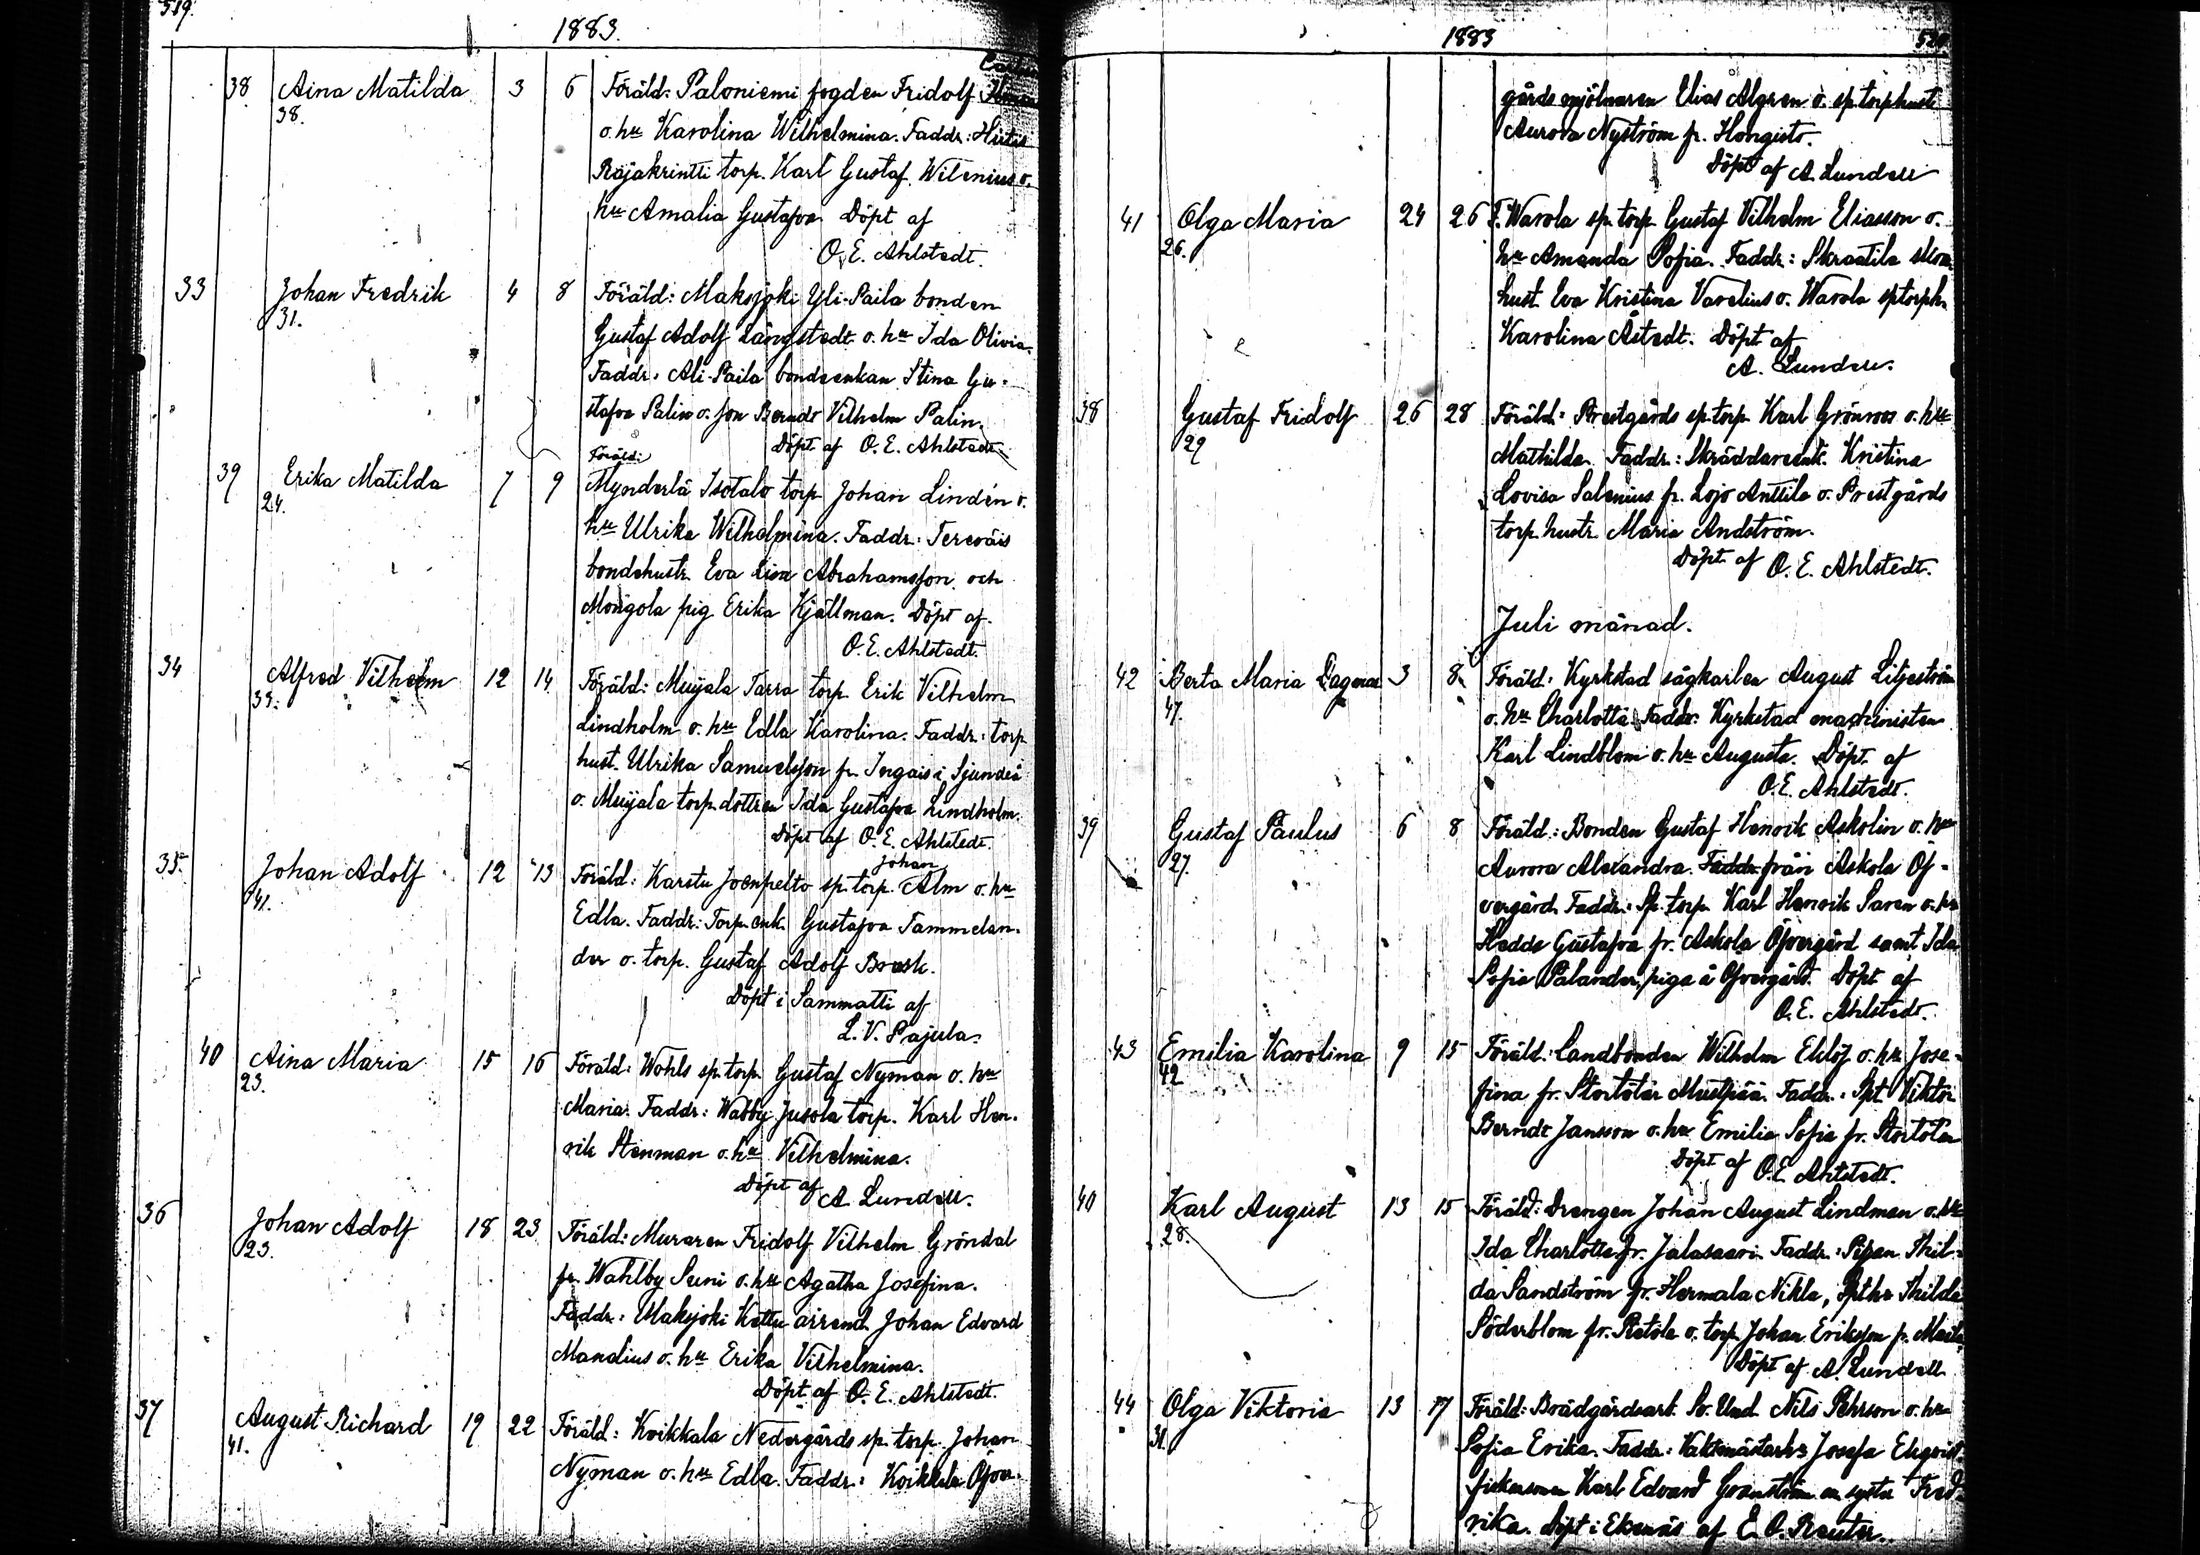 519.
1883.
38 Aina Matilda 3 6 Föräld: Paloniemi fogden Fridolf
38. o. hu Karolina Wilhelmina. Faddr: Hiitis
Rajakrintti torp. Karl Gustaf Witenius o.
hu Amalia Gustafva Döpt af
O. E. Ahlstedt.
33 Johan Fredrik 4 8 Föräld: Maksjoki Yli-Paila bonden
31. Gustaf Adolf Långstedt o. hu Ida Olivia.
Faddr: Ali-Paila bondeenkan Stina Gu-
stafva Palin o. son Berndt Vilhelm Palin.
Döpt af O. E. Ahlstedt.
Föräld:
39 Erika Matilda 7 9 Mynderlä Isotalo torp Johan Lindén o.
24. hu Ulrika Wilhelmina. Faddr: Terväis
bondehustr. Eva Lisa Abrahamsson och
Mongola pig Erika Kjällman. Döpt af
O. E. Ahlstedt.
34 Alfred Vilhelm 12 14 Föräld: Muijala Tarra torp Erik Vilhelm
33. Lindholm o. hu Edla Karolina. Faddr: torp
hust. Ulrika Samuelsson fr. Ingais i Sjundeå
o. Muijala torp.dottren Ida Gustafva Lindholm.
Döpt af O. E. Ahlstedt.
Johan
35 Johan Adolf 12 13 Föräld: Karstu Joenpelto sp. torp. Alm o. hu
41. Edla. Faddr: Torp. enk. Gustafva Tammelan-
der o. torp. Gustaf Adolf Brask.
Döpt i Sammatti af
L. V. Pajula.
40 Aina Maria 15 16 Föräld: Wohls sp. torp. Gustaf Nyman o. hu
23. Maria. Faddr: Wabby Jusola torp. Karl Hen-
rik Stenman o. hu Vilhelmina.
Döpt af A. Lundell.
36 Johan Adolf 18 23 Föräld: Muraren Fridolf Vilhelm Gröndal
23. fr. Wahlby Suni o. hu Agatha Josefina.
Faddr: Maksjoki Kettu arrend. Johan Edvard
Mandius o. hu Erika Vilhelmina.
Döpt af O. E. Ahlstedt.
37 August Richard 19 22 Föräld: Koikkala Nedergårds sp. torp. Johan
41. Nyman o. hu Edla. Faddr: Koikkala Öfver-
1883 520.
gårds mjölnaren Elias Algren o. sp torphustr
Aurora Nyström fr. Hongisto.
Döpt af A. Lundell
41 Olga Maria 24 26 F. Warola sp. torp. Gustaf Vilhelm Eliasson o.
26. hu Amanda Sofia. Faddr: Skraatila skom.
hust. Eva Kristina Varelius o. Warola sp torph.
Karolina Åstedt. Döpt af
A. Lundell.
38 Gustaf Fridolf 26 28 Föräld: Prestgårds sp. torp. Karl Grönroos o. hu
29 Mathilda. Faddr: Skräddareenk. Kristina
Lovisa Salenius fr. Lojo Anttila o. Prestgårds
torp. hustr. Maria Andström.
Döpt af O. E. Ahlstedt.
Juli månad.
42 Berta Maria Dagmar 3 8 Föräld: Kyrkstad sågkarlen August Liljeström
47. o. hu Charlotta. Faddr. Kyrkstad maschinisten
Karl Lindblom o. hu Augusta. Döpt af
O. E. Ahlstedt.
39 Gustaf Paulus 6 8 Föräld: Bonden Gustaf Henrik Askolin o. hu
27. Aurora Alexandra. Faddr från Askola Öf-
vergård. Faddr: Sp. torp. Karl Henrik Saren o. hu
Hedda Gustafva fr. Askola Öfvergård samt Ida
Sofia Palander, piga å Öfvergård. Döpt af
O. E. Ahlstedt.
43 Emilia Karolina 9 15 Föräld: Landbonden Wilhelm Eklöf o. hu Jose-
42 fina fr. Stortötar Mustpää. Faddr: Spt Viktor
Berndt Jansson o. hu Emilia Sofia fr. Stortötar
Döpt af O. E. Ahlstedt.
40 Karl August 13 15 Föräld: Drengen Johan August Lindman o. hu
28. Ida Charlotta fr. Jalasaari. Faddr: Pigan Thil-
da Sandström fr. Hermala Nikla, Spt hu Thilda
Söderblom fr. Ratola o. torp. Johan Eriksson fr.
Döpt af A. Lundell
44 Olga Viktoria 13 17 Föräld: Brädgårdsarb. Nils Pehrson o. hu
31. Sofia Erika. Faddr: Vaktmästarhu Josefa Ekqvist
fiskarson Karl Edvard Granström en syster Fred-
rika. Döpt i Ekenäs af E. O. Reuter.